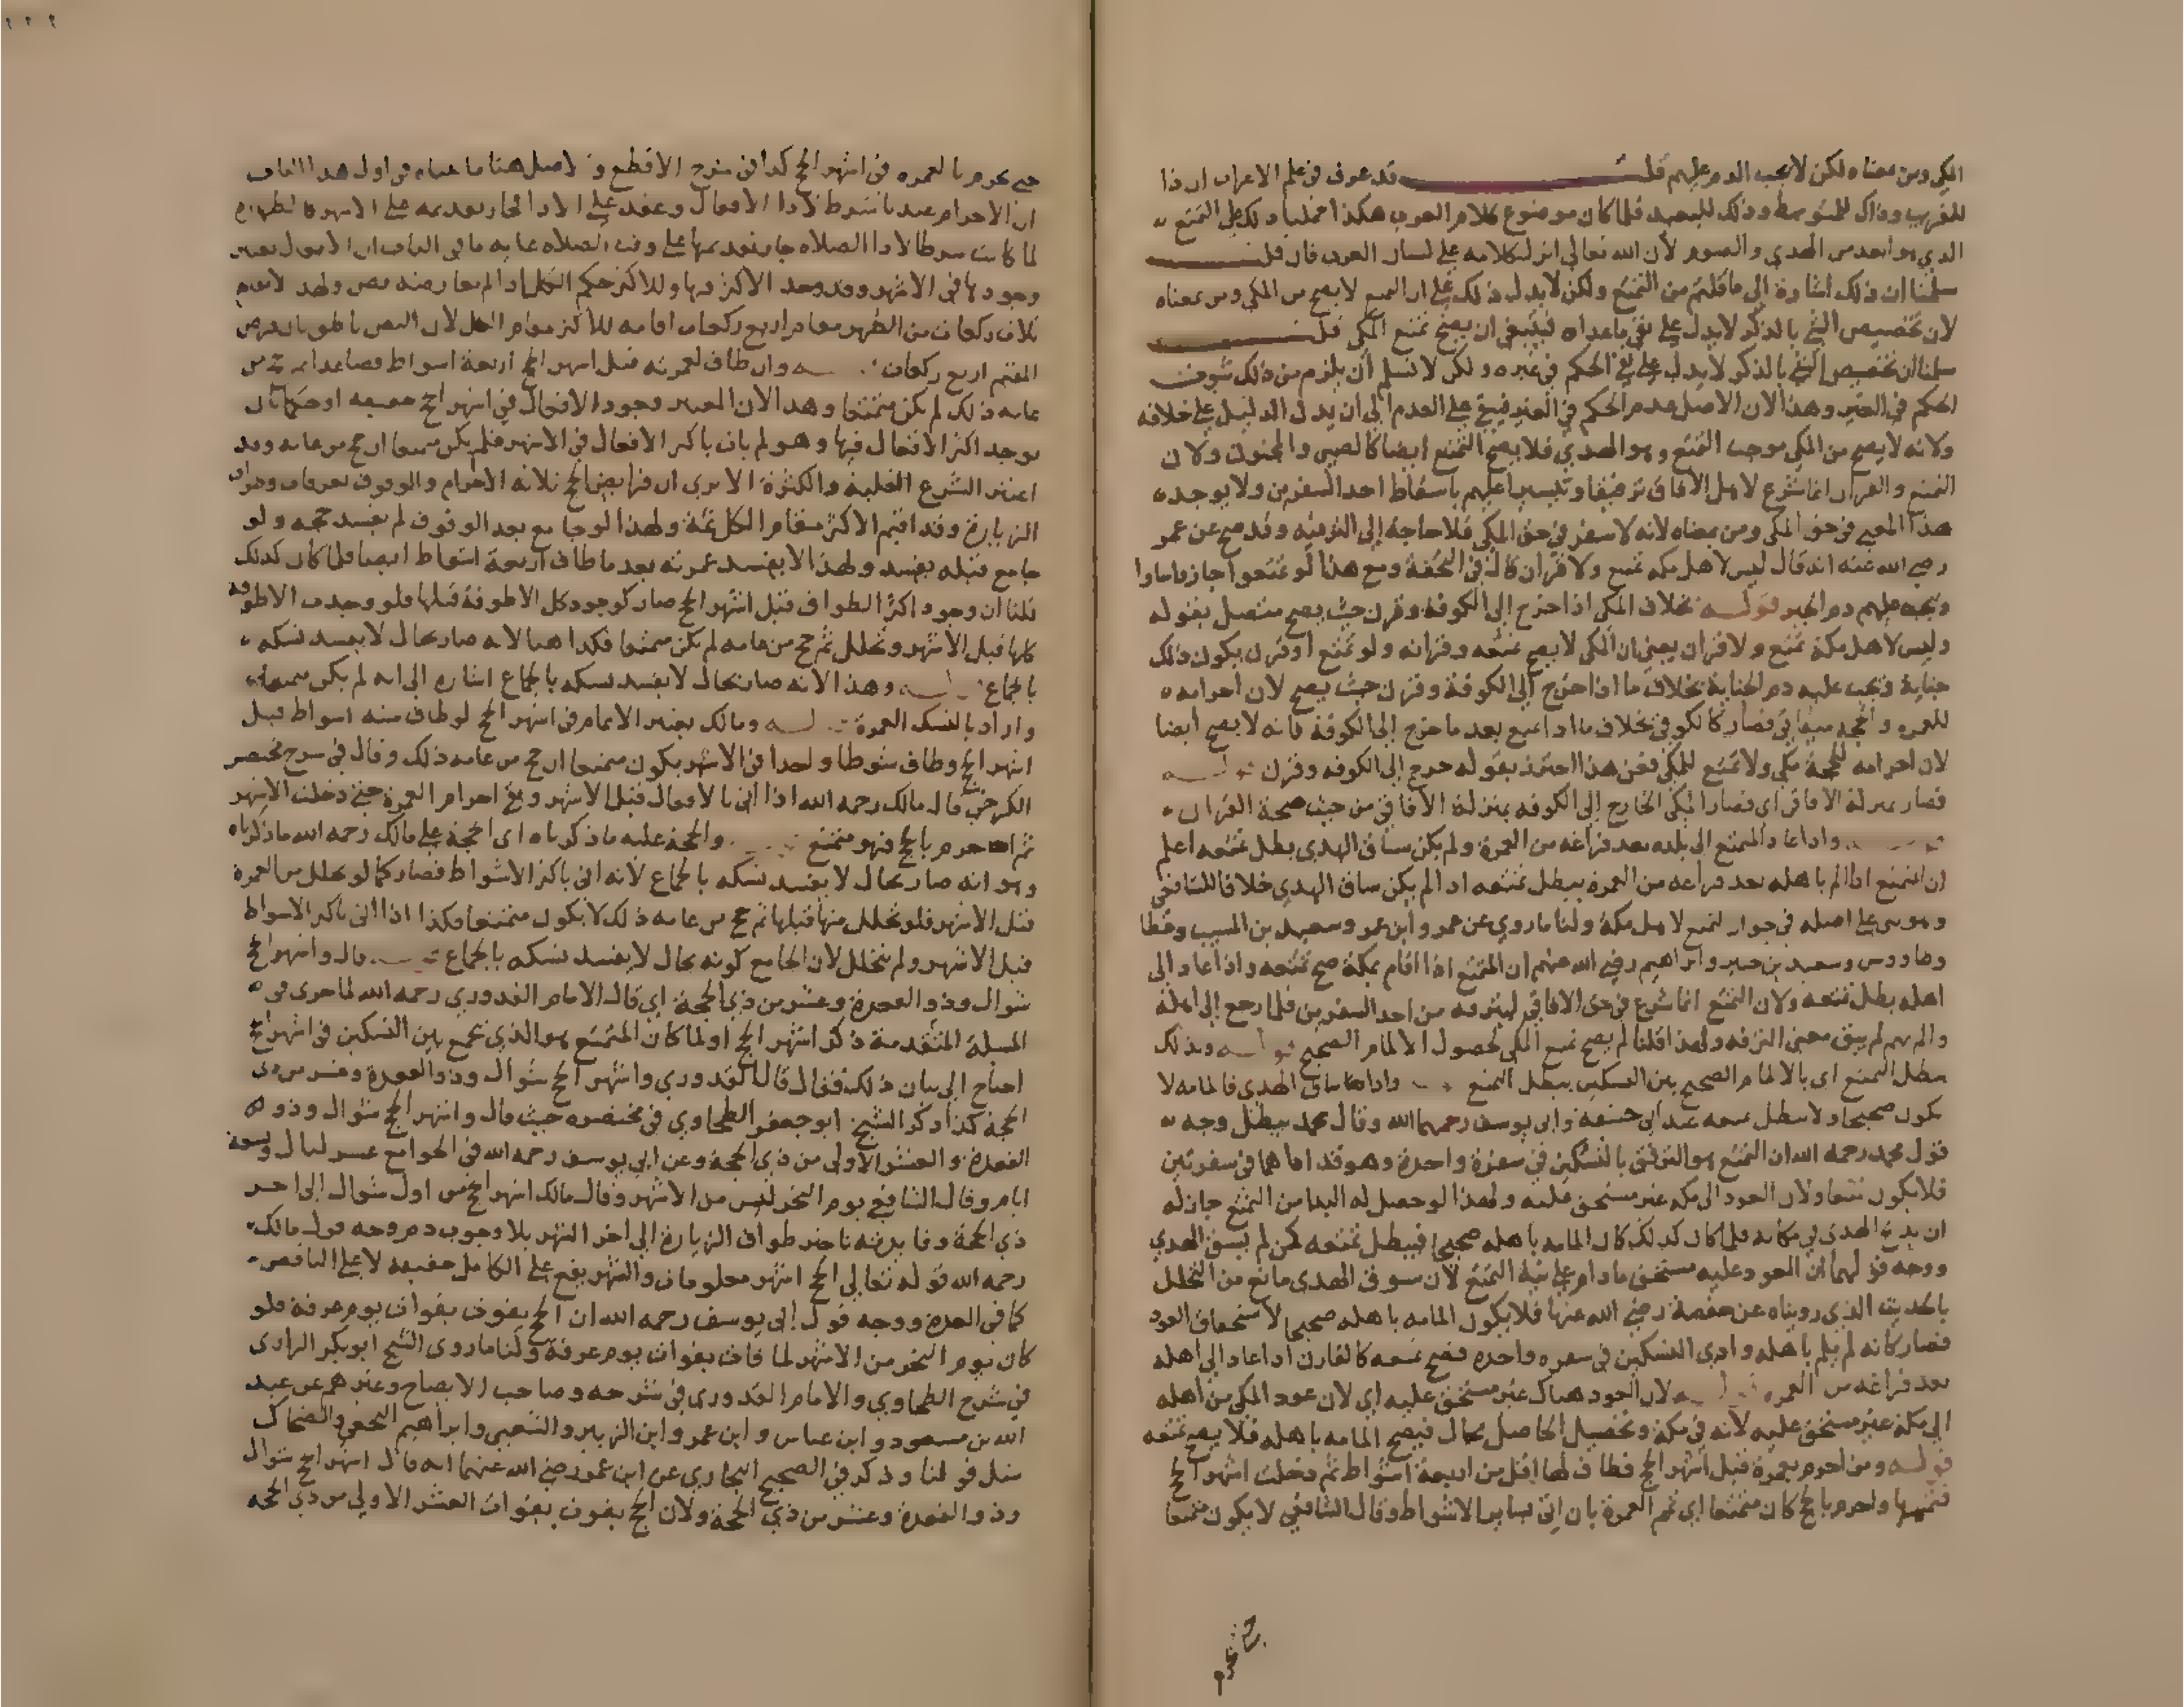 المكي ومن معناه ولكن لا يجب الدم عليهم قلت قد عرف في علم الاعراب ان ذا
للقريب وذاك للمتوسط وذلك للبعيد فلما كان موضوع كلام العرب هكذا دلك على التمتع
الذي هو ابعد من الهدي والصوم لأن الله تعالى انزل كلامه على لسان العرب فان قلت
سلمنا ان ذلك اشارة الى ما قلتم من التمتع ولكن لا يدل ذلك على ان التمتع لا يصح من المكي ومن بمعناه
لان تخصيص الشي بالذكر لا يدل على نفي ما عداه فينبغي ان يصح تمتع المكي قلت
سلمنا ان تخصيص الشي بالذكر لا يدل على نفي الحكم في غيره ولكن لا نسلم أن يلزم من ذلك ثبوت
الحكم في الغير وهذا لان الاصل عدم الحكم في الغير فيبقى على العدم الى ان يدل الدليل على خلافه
ولانه لا يصح من المكي موجب التمتع وهو الهدي فلا يصح التمتع ايضا كالصبي والمجنون ولان
التمتع والقران انما شرع لاهل الآفاق ترفيها وتيسيرا عليهم باسقاط احد السفرين ولا يوجد
هذا المعنى في حق المكي ومن بمعناه لانه لا سفر في حق المكي فلا حاجة إلى الترفيه وقد صح عن عمر
رضي الله عنه انه قال ليس لاهل مكه تمتع ولا قران قال في التحفة ومع هذا لو تمتعوا جاز واساوا
ويجب عليهم دم الجبر قوله بخلاف المكي اذا خرج إلى الكوفة وقرن حيث يصح متصل بقوله
وليس لاهل مكة تمتع ولا قران يعني ان المكي لا يصح تمتعه وقرانه ولو تمتع او قرن يكون ذلك
جناية فيجب عليه دم الجناية بخلاف ما اذا خرج إلى الكوفة وقرن حيث يصح لان احرامه
للعمره والحجه ميقاتي فصار كالكوفي بخلاف ما اذا تمتع بعد ما خرج إلى الكوفة فانه لا يصح ايضا
لان احرامه للحجة مكي ولا تمتع للمكي فعن هذا احترز بقوله خرج إلى الكوفه وقرن قوله
فصار بمنزلة الافاقي اي فصار المكي الخارج إلى الكوفه بمنزلة الآفاقي من حيث صحة القران
واذا عاد المتمتع الى بلده بعد فراغه من العمرة ولم يكن ساق الهدي بطل تمتعه اعلم
ان المتمتع اذا الم باهله بعد فراغه من العمرة يبطل تمتعه اذا لم يكن ساق الهدي خلافا للشافعي
وهو بنى على اصله في جواز تمتع لاهل مكة ولنا ما روي عن عمر وابن عمر وسعيد بن المسيب وعطا
وطاووس وسعيد بن جبير وابراهيم رضي الله عنهم ان المتمتع اذا اقام بمكة صح تمتعه واذا عاد إلى
اهله بطل تمتعه ولان التمتع انما شرع في حق الافاقي ليترفه من احد السفرين فلما رجع إلى اهله
والم بهم لم يبق معنى الترفه ولهذا قلنا لم يصح تمتع المكي لحصول الالمام الصحيح قوله وبذلك
يبطل التمتع اي بالالمام الصحيح بين النسكين يبطل التمتع واذا ساق الهدي فالمامه لا
يكون صحيحا ولا يبطل تمتعه عند ابي حنيفة وابي يوسف رحمهما الله وقال محمد يبطل وجه
قول محمد رحمه الله ان التمتع هو الترفق بالنسكين في سفرة واحدة وهو قد اداهما في سفرتين
فلا يكون متمتعا ولان العود الى مكه غير مستحق عليه ولهذا لو حصل له البدا من التمتع جاز له
ان يذبح الهدي في مكانه فلما كان كذلك كان المامه باهله صحيحا فيبطل تمتعه كمن لم يسق الهدي
ووجه قولهما ان العود عليه مستحق ما دام على نية التمتع لأن سوق الهدي مانع من التحلل
بالحديث الذي رويناه عن حفصة رضي الله عنها فلا يكون المامه باهله صحيحا لاستحقاق العود
فصار كانه لم يلم باهله وادى النسكين في سفره واحده فصح تمتعه كالقارن اذا عاد الى اهله
بعد فراغه من العمره قوله لان العود هناك غير مستحق عليه اي لان عود المكي من اهله
الى مكة غير مستحق عليه لأنه في مكة وتحصيل الحاصل محال فيصح المامه باهله فلا يصح تمتعه
قوله ومن احرم بعمرة قبل اشهر الحج فطاف لها اقل من اربعة اشواط ثم دخلت اشهر الحج
فتممها واحرم بالحج كان متمتعا اي تمم العمرة بان اتى بساير الاشواط وقال الشافعي لا يكون متمتعا
حتى يحرم
حتى يحرم بالعمره في اشهر الحج كذا في شرح الاقطع والاصل هنا ما بيناه في اول هذا الباب
ان الاحرام عندنا شرط لادا الافعال وعقد على الادا فجاز تقديمه على الاشهر كالطهارة
لما كانت شرطا لادا الصلاه جاز تقديمها على وقت الصلاه غاية ما في الباب ان الافعال يعتبر
وجودها في الاشهر وقد وجد الاكثر فيها وللاكثر حكم الكل اذا لم يعارضه نص ولهذا لا تقام
ثلاث ركعات من الظهر مقام اربع ركعات اقامه للاكثر مقام الكل لان النص ناطق بان فرض
المقيم اربع ركعات قوله وان طاف لعمرته قبل اشهر الحج اربعة اشواط فصاعدا ثم حج من
عامه ذلك لم يكن متمتعا وهذا لان المعتبر وجود الافعال في اشهر الحج حقيقه او حكما بان
يوجد اكثر الافعال فيها وهو لم يات باكثر الافعال في الاشهر فلم يكن متمتعا ان حج من عامه وقد
اعتبر الشرع الغلبة والكثرة الا يرى ان فرايض الحج ثلاثة الاحرام والوقوف بعرفات وطواف
الزيارة وقد اقيم الاكثر مقام الكل ثمة ولهذا لو جامع بعد الوقوف لم يفسد حجه ولو
جامع قبله يفسد ولهذا لا يفسد عمرته بعد ما طاف اربعة اشواط ايضا فلما كان كذلك
قلنا ان وجود اكثر الطواف قبل اشهر الحج صار كوجود كل الاطوفة قبلها فلو وجدت الاطوفه
كلها قبل الأشهر وتحلل ثم حج من عامه لم يكن متمتعا فكذا هنا لانه صار بحال لا يفسد نسكه
بالجماع قوله وهذا لانه صار بحال لا يفسد نسكه بالجماع اشاره الى انه لم يكن متمتعا
واراد بالنسك العمرة قوله ومالك يعتبر الاتمام في اشهر الحج لو طاف ستة اشواط قبل
اشهر الحج وطاف شوطا واحدا في الاشهر يكون متمتعا ان حج من عامه ذلك وقال في شرح مختصر
الكرخي قال مالك رحمه الله اذا اتى بالافعال قبل الاشهر وبقي احرام العمرة حتى دخلت الاشهر
ثم احرم بالحج فهو متمتع والحجة عليه ما ذكرناه اي الحجة على مالك رحمه الله ما ذكرناه
وهو انه صار بحال لا يفسد نسكه بالجماع لأنه اتى باكثر الاشواط فصار كما لو تحلل من العمرة
قبل الاشهر فلو تحلل منها قبلها ثم حج من عامه ذلك لا يكون متمتعا فكذا اذا اتى باكثر الاشواط
قبل الاشهر ولم يتحلل لان الجامع كونه بحال لا يفسد نسكه بالجماع قال واشهر الحج
شوال وذو القعدة وعشر من ذي الحجة اي قال الامام القدوري رحمه الله لما جرى في
المسلة المتقدمة ذكر اشهر الحج اولما كان المتمتع هو الذي يجمع بين النسكين في اشهر الحج
احتاج الى بيان ذلك فقال قال القدوري واشهر الحج شوال وذو القعدة وعشر من ذي
الحجة كذا ذكر الشيخ ابو جعفر الطحاوي في مختصره حيث قال واشهر الحج شوال وذو
القعدة والعشر الاولى من ذي الحجة وعن ابي يوسف رحمه الله في الجوامع عشر ليال وتسعة
ايام وقال الشافعي يوم النحر ليس من الاشهر وقال مالك اشهر الحج من اول شوال إلى اخر
ذي الحجة وفايدته تاخير طواف الزيارة إلى اخر الشهر بلا وجوب دم وجه قول مالك
رحمه الله قوله تعالى الحج اشهر معلومات والشهر يقع على الكامل حقيقه لا على الناقص
كما في العدة ووجه قول ابي يوسف رحمه الله ان الحج يفوت بفوات يوم عرفة فلو
كان يوم النحر من الاشهر لما فات بفوات يوم عرفة ولنا ما روى الشيخ ابو بكر الرازي
في شرح الطحاوي والامام القدوري في شرحه وصاحب الايضاح وغيرهم عن عبد
الله بن مسعود وابن عباس وابن عمر وابن الزبير والشعبي وابراهيم النخعي والضحاك
مثل قولنا وذكر في الصحيح البخاري عن ابن عمر رضي الله عنهما انه قال اشهر الحج شوال
وذو القعدة وعشر من ذي الحجة ولان الحج يفوت بفوات العشر الاولي من ذي الحجة